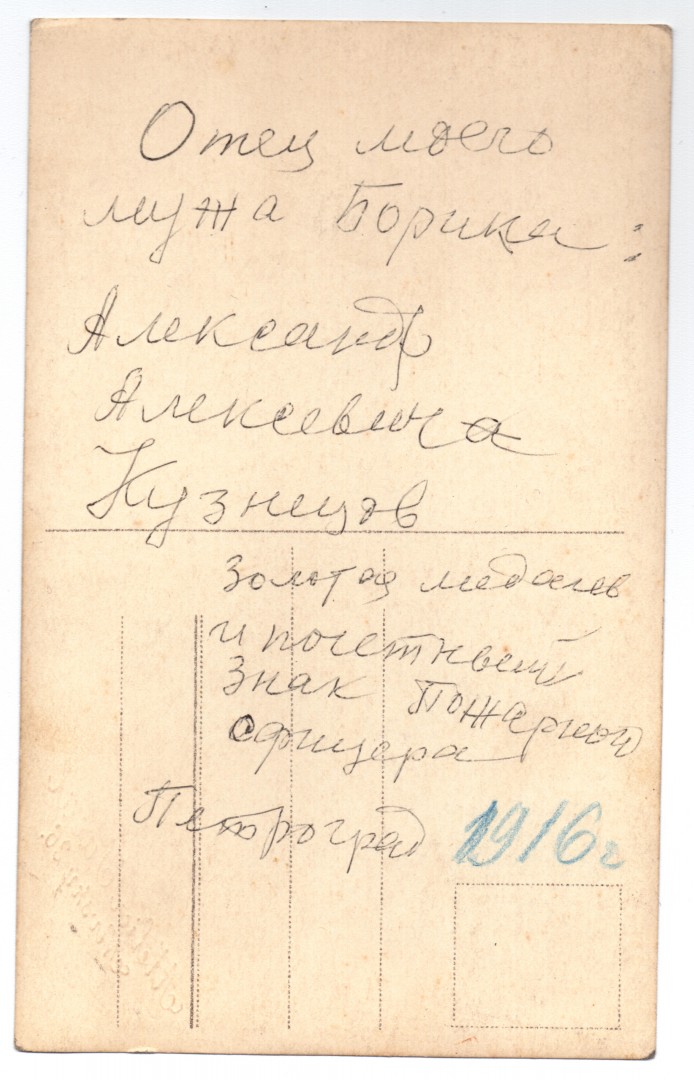 Отец моего
мужа Борика:
Александр
Алексевича
Кузнецов
Золотая медаль
и почетный
Знак Пожарного
офицера
Петроград 1916 г